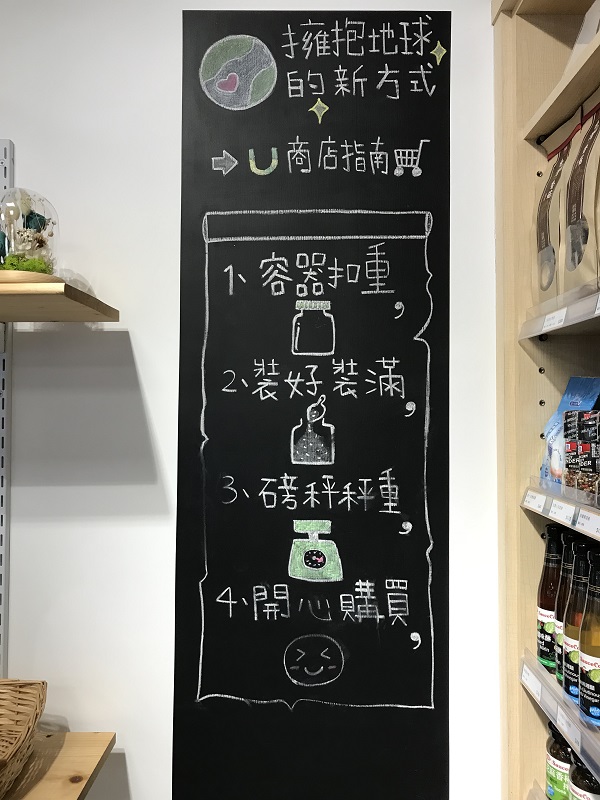 擁抱地球
的新方式
U商店指南
1、容器扣重,
2、裝好裝滿,
3、磅秤秤重,
4、開心購買,